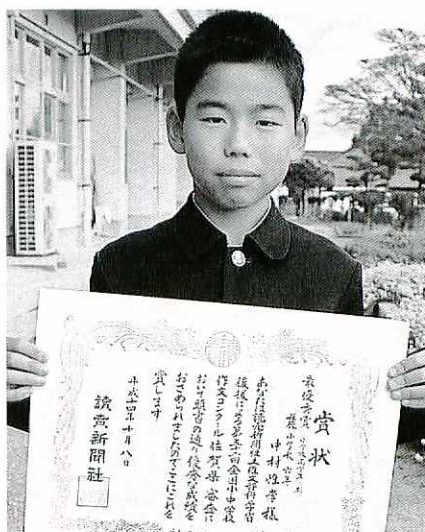 賞状
最優秀賞
小学校 六年
中村 様
あなたは読売新聞社主催文部科学省
後援による 全国小中学校
作文コンクール佐賀県審査に
おいて頭書の通り優秀な成績を
おさめられましたのでここにこれを
賞します
平成十四年十月八日
讀賣新聞社